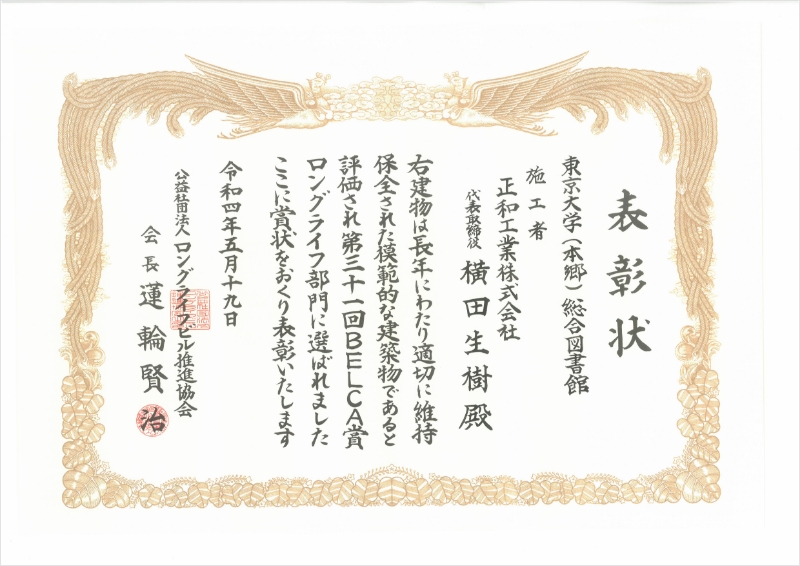 表彰状
東京大学(本郷)総合図書館
施工者
正和工業株式会社
代表取締役 横田生樹殿
右建物は長年にわたり適切に維持
保全された模範的な建築物であると
評価され第三十一回BELCA賞
ロングライフ部門に選ばれました
ここに賞状をおくり表彰いたします
令和四年五月十九日
公益社団法人 ロングライフビル推進協会
会長 蓮輪賢治